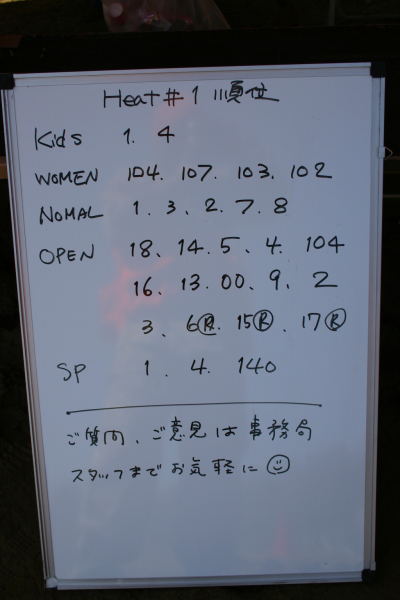 Heat #1 順位
Kids 1. 4
WOMEN 104. 107. 103. 102
NOMAL 1. 3、2. 7. 8
OPEN 18、14. 5、4. 104
16、13. 00、9、2
3、6Ⓡ. 15Ⓡ、17Ⓡ
SP 1. 4. 140
ご質問、ご意見は事務局
スタッフまでお気軽に☺